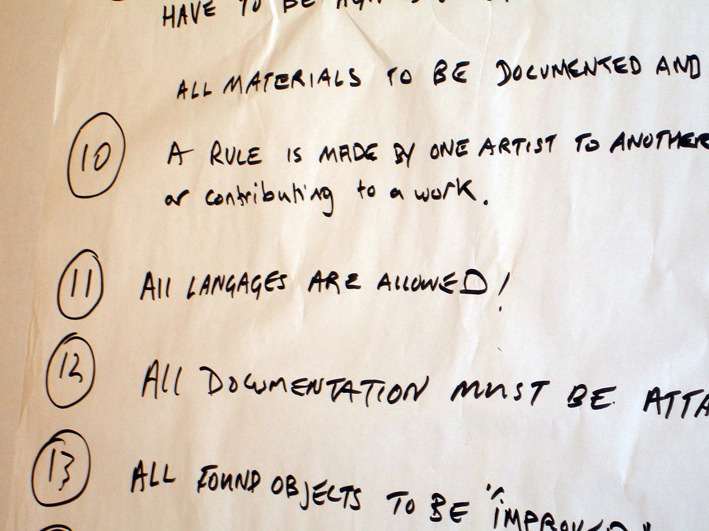 HAVE TO BE
ALL MATERIALS TO BE DOCUMENTED AND
10 A RULE IS MADE BY ONE ARTIST TO ANOTHER
or contributing to a work.
11 All LANGAGES ARE ALLOWED!
12 All DOCUMENTATION MUST BE ATTA
13 ALL FOUND OBJECTS TO BE "IMPROVED"